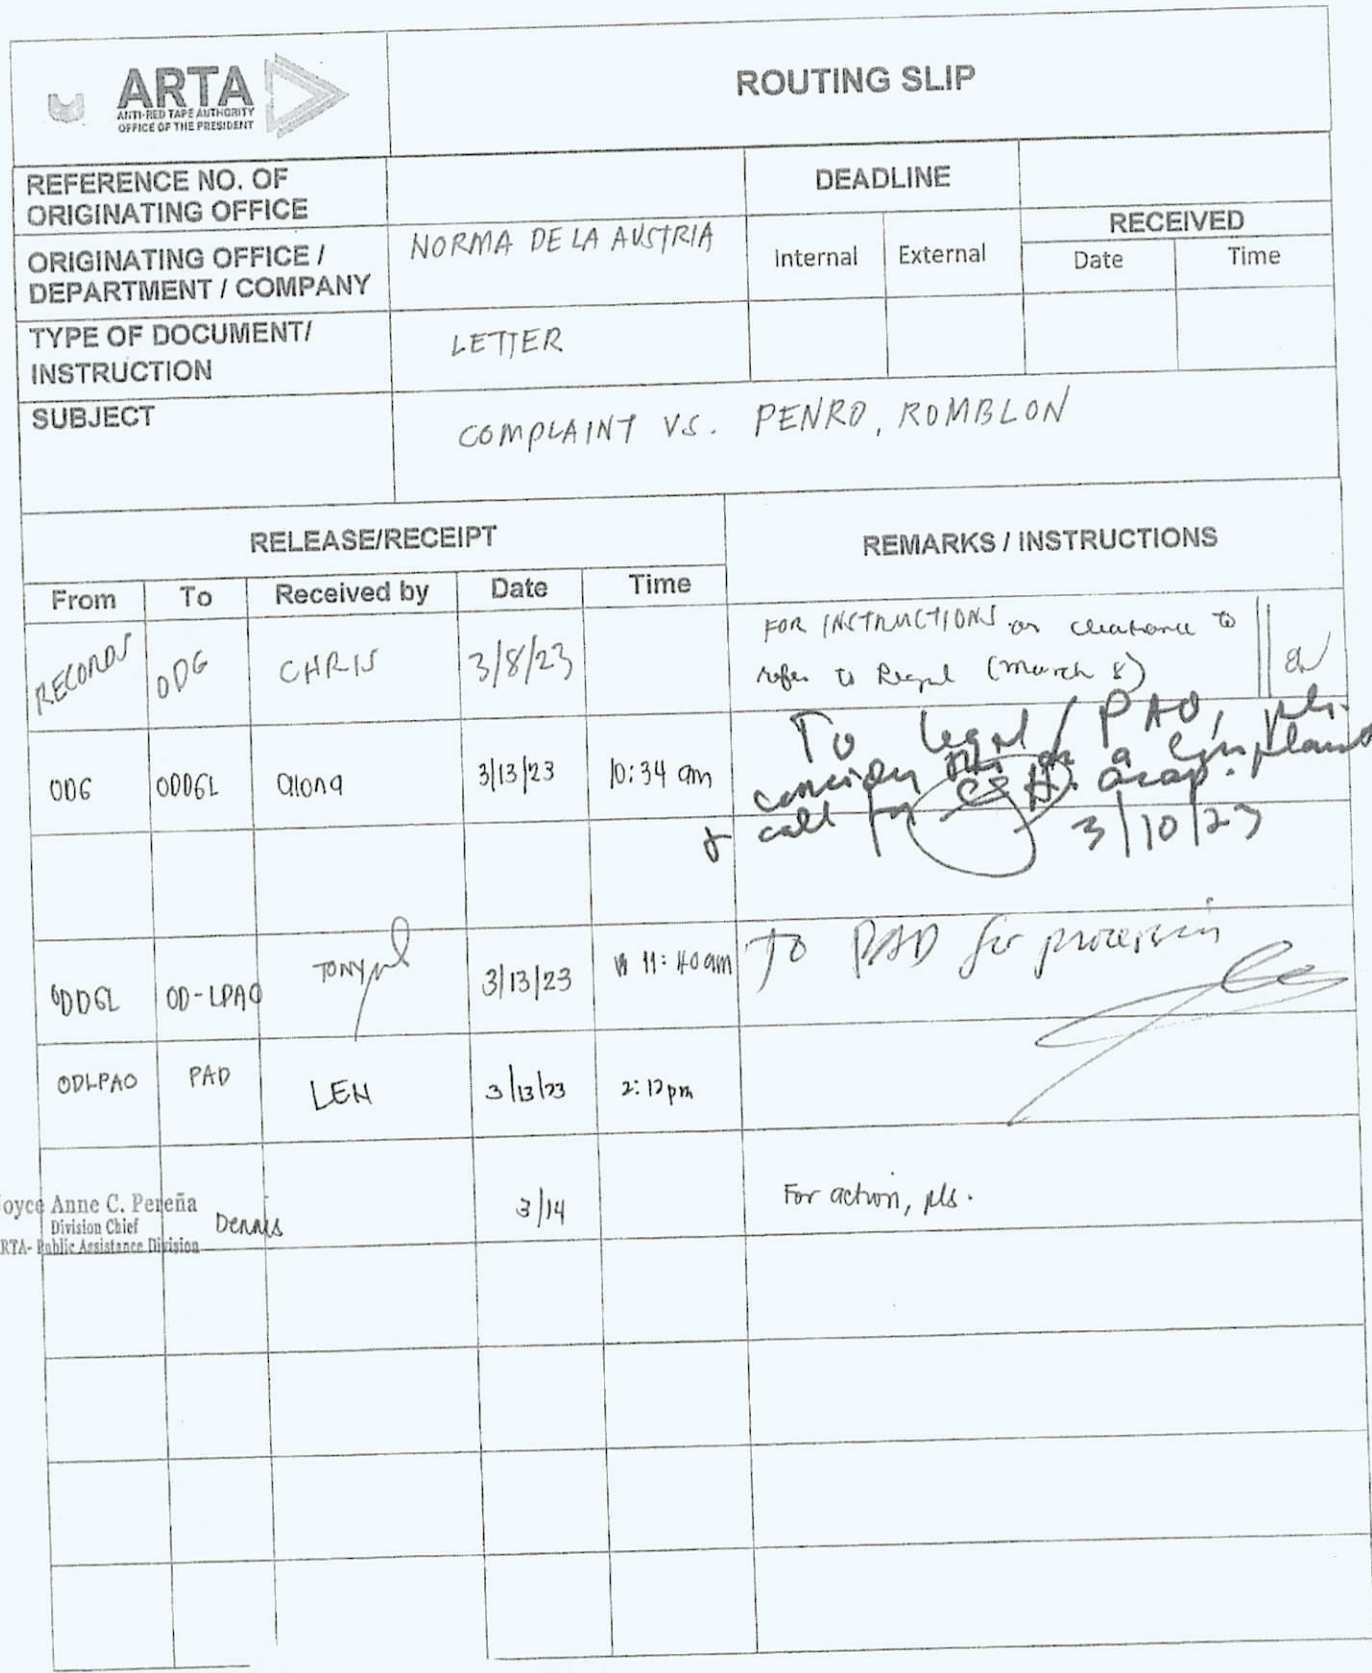 ARTA
ANTI-RED TAPE AUTHORITY
OFFICE OF THE PRESIDENT
ROUTING SLIP
REFERENCE NO. OF
ORIGINATING OFFICE
DEADLINE
ORIGINATING OFFICE /
DEPARTMENT / COMPANY
NORMA DE LA AUSTRIA
Internal
External
RECEIVED
Date
Time
TYPE OF DOCUMENT/
INSTRUCTION
LETTER
SUBJECT
COMPLAINT VS. PENRO, ROMBLON
RELEASE/RECEIPT
REMARKS / INSTRUCTIONS
From
To
Received by
Date
Time
RECORDS
ODG
CHRIS
3/8/23
FOR INSTRUCTIONS or clearance to
refer to (March 8)
ODG
ODDGL
alona
3/13/23
10:34 am
To Legal / PAO, pls.
consider this as a complaint
& call for asap.
3/10/23
ODDGL
OD-LPAO
TONY
3/13/23
11:40am
TO PAD for processin
ODLPAO
PAD
LEN
3/13/23
2:12pm
oyce Anne C. Pereña
Division Chief
RTA- Public Assistance Division
Dennis
3/14
For action, pls.